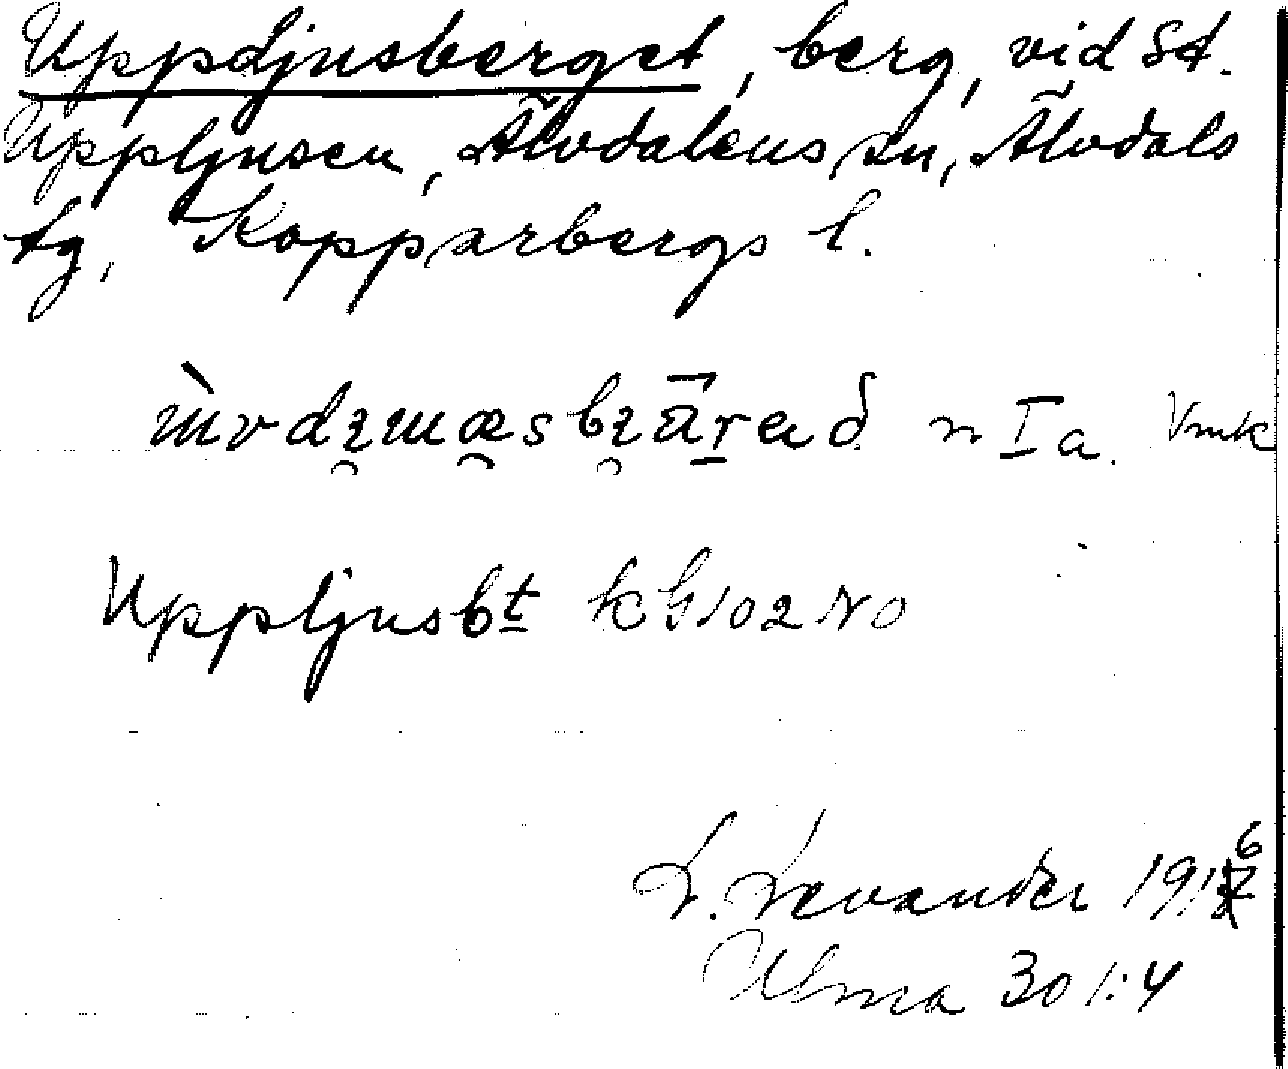 Uppdjusberget, berg, vid St.
Uppljusen, Älvdalens sn, Älvdals
tg, Kopparbergs l.
n I a. Vmk
Uppljusbt kh 102 NO
L. Levander 1916
Ulma 301:4